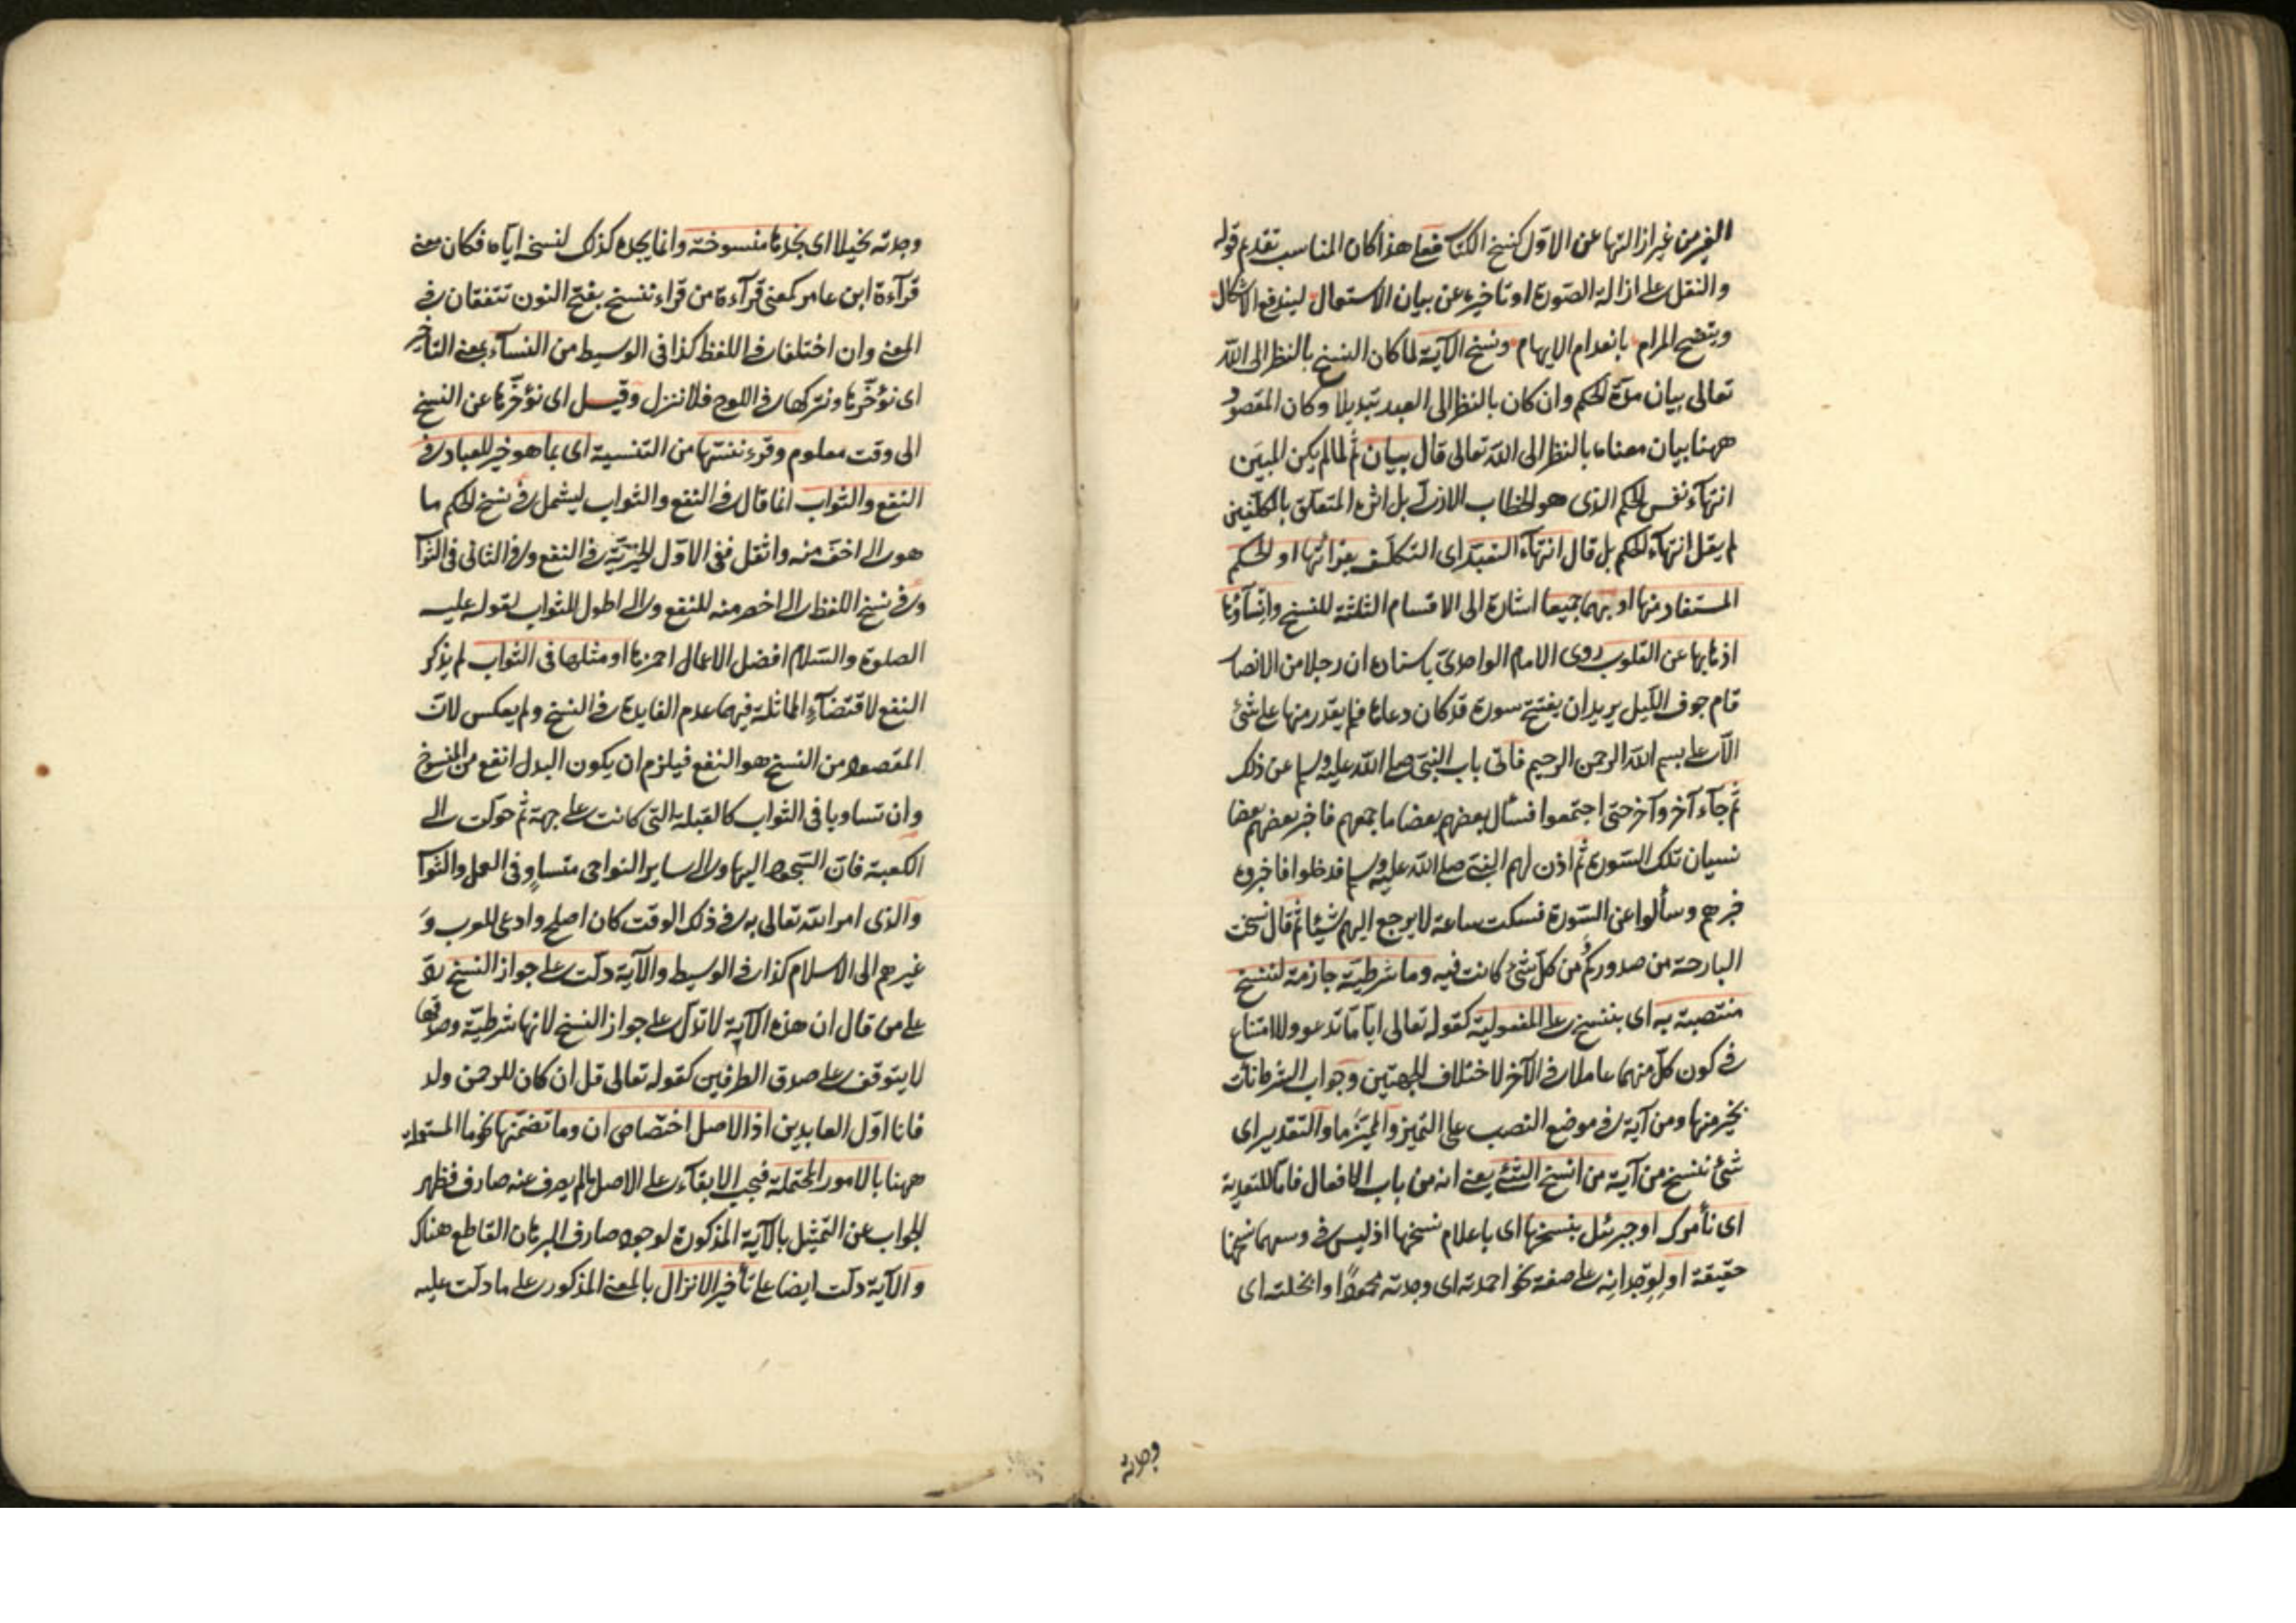 الغير من غير ازالتها عن الاول كنسخ الكتاب فعلى هذا كان المناسب تقديم قوله
والنقل على ازالة الصورة او تاخيره عن بيان الاستعمال ليندفع الاشكال
ويتضح المرام بانعدام الايهام ونسخ الآية لما كان النسخ بالنظر الى الله
تعالى بيان مدة الحكم وان كان بالنظر الى العبد تبديلا وكان المقصود
ههنا بيان معناه بالنظر الى الله تعالى قال بيان ثم لما لم يكن المبين
انتهآء نفس الحكم الذى هو الخطاب الازلى بل اثره المتعلق بالمكلفين
لم يقل انتهآء الحكم بل قال انتهآء التعبد اى التكلف بقرائتها او الحكم
المستفاد منها او بهما جميعا اشارة الى الاقسام الثلثة للنسخ وانسآؤها
اذهابها عن القلوب روى الامام الواحدى باسناده ان رجلا من الانصار
قام جوف الليل يريد ان يفتتح سورة قد كان دعاها فلم يقدر منها على شئ
الا على بسم الله الرحمن الرحيم فاتى باب النبى صلى الله عليه وسلم عن ذلك
ثم جآء آخر وآخر حتى اجتمعوا فسأل بعضهم بعضا ما جمعهم فاخبر بعضهم بعضا
نسيان تلك السورة ثم اذن لهم النبى صلى الله عليه وسلم فدخلوا فاخبروه
خبرهم وسألوا عن السورة فسكت ساعة لا يرجع اليهم شيئا ثم قال نسخت
البارحة من صدوركم ومن كل شئ كانت فيه وما شرطية جازمة لننسخ
منتصبة به اى بننسخ على المفعولية كقوله تعالى ايا ما تدعو ولا امتناع
فى كون كل منهما عاملا فى الآخر لاختلاف الجهتين وجواب الشرط نأت
بخير منها ومن آية فى موضع النصب على التميز والمميز ما والتقدير اى
شئ ننسخ من آية من انسخ الشئ يعنى انه من باب الافعال فاما للتعدية
اى نأمرك او جبرئل بنسخها اى باعلام نسخها اذ ليس فى وسعهما نسخها
حقيقة او لوجدانه على صفة نحو احمدته اى وجدته محمودا وابخلته اى
وجدته
وجدته بخيلا اى نجدها منسوخة وانما يجده كذلك لنسخه اياه فكان معنى
قرآءة ابن عامر كمعنى قرآءة من قراء ننسخ بفتح النون تتفقان فى
المعنى وان اختلفا فى اللفظ كذا فى الوسيط من النسآء بمعنى التأخير
اى نؤخرها ونتركها فى اللوح فلا ننزل وقيل اى نؤخرها عن النسخ
الى وقت معلوم وقرء ننسها من التنسية اى بما هو خير للعباد فى
النفع والثواب انما قال فى النفع والثواب ليشمل فى نسخ الحكم ما
هو الى اخف منه واثقل ففى الاول الخيرية فى النفع وفى الثانى فى الثواب
وفى نسخ اللفظ الى اخصر منه للنفع والى اطول للثواب لقوله عليه
الصلوة والسلام افضل الاعمال احمزها او مثلها فى الثواب لم يذكر
النفع لاقتضآء المماثلة فيهما عدم الفايدة فى النسخ ولم يعكس لان
المقصود من النسخ هو النفع فيلزم ان يكون البدل انفع من المنسوخ
وان تساويا فى الثواب كالقبلة التى كانت على جهة ثم حولت الى
الكعبة فان التوجه اليها والى ساير النواحى متساو فى العمل والثواب
والذى امر الله تعالى به فى ذلك الوقت كان اصلح وادعى للعرب و
غيرهم الى الاسلام كذا فى الوسيط والآية دلت على جواز النسخ رد
على من قال ان هذه الآية لا تدل على جواز النسخ لانها شرطية وصدقها
لا يتوقف على صدق الطرفين كقوله تعالى قل ان كان للرحمن ولد
فانا اول العابدين اذ الاصل اختصاص ان وما تضمنها نحو ما المستعملة
ههنا بالامور المحتملة فيجب الابقآء على الاصل ما لم يصرف عنه صارف فظهر
الجواب عن التمثيل بالآية المذكورة لوجود صارف البرهان القاطع هناك
والآية دلت ايضا على تأخير الانزال بالمعنى المذكور على ما دلت عليه